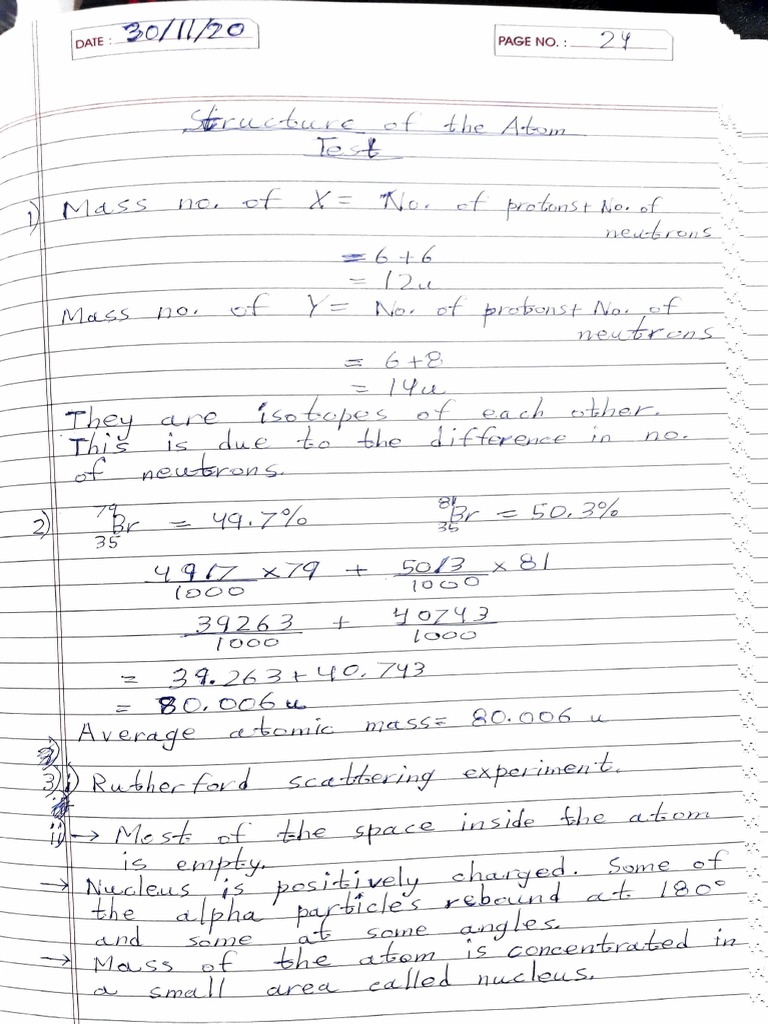 DATE : 30/11/20
PAGE NO. : 24
Structure of the Atom
Test
1) Mass no. of X = No. of protons + No. of
neutrons
= 6 + 6
= 12u
Mass no. of Y = No. of protons + No. of
neutrons
= 6 + 8
= 14u
They are isotopes of each other.
This is due to the difference in no.
of neutrons.
2) ⁷⁹₃₅Br = 49.7% ⁸¹₃₅Br = 50.3%
49.7/1000 × 79 + 50.3/1000 × 81
39263/1000 + 40743/1000
= 39.263 + 40.743
= 80.006 u
Average atomic mass = 80.006 u
3) i) Rutherford scattering experiment.
ii) → Most of the space inside the atom
is empty.
→ Nucleus is positively charged. Some of
the alpha particles rebound at 180°
and some at some angles.
→ Mass of the atom is concentrated in
a small area called nucleus.